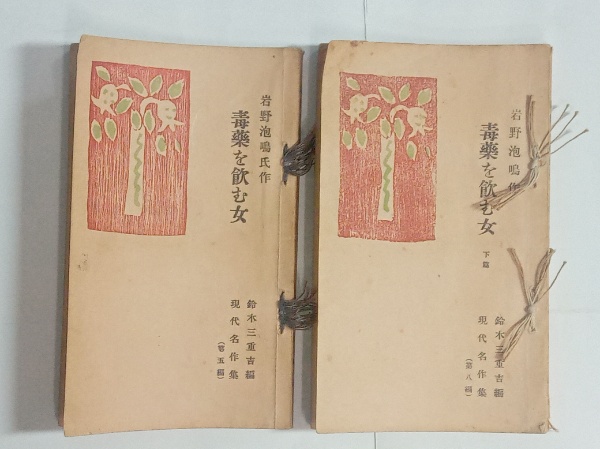 岩野泡鳴氏作
毒藥を飮む女
鈴木三重吉編
現代名作集
(第五編)
岩野泡鳴作
毒藥を飮む女
下篇
鈴木三重吉編
現代名作集
(第八編)